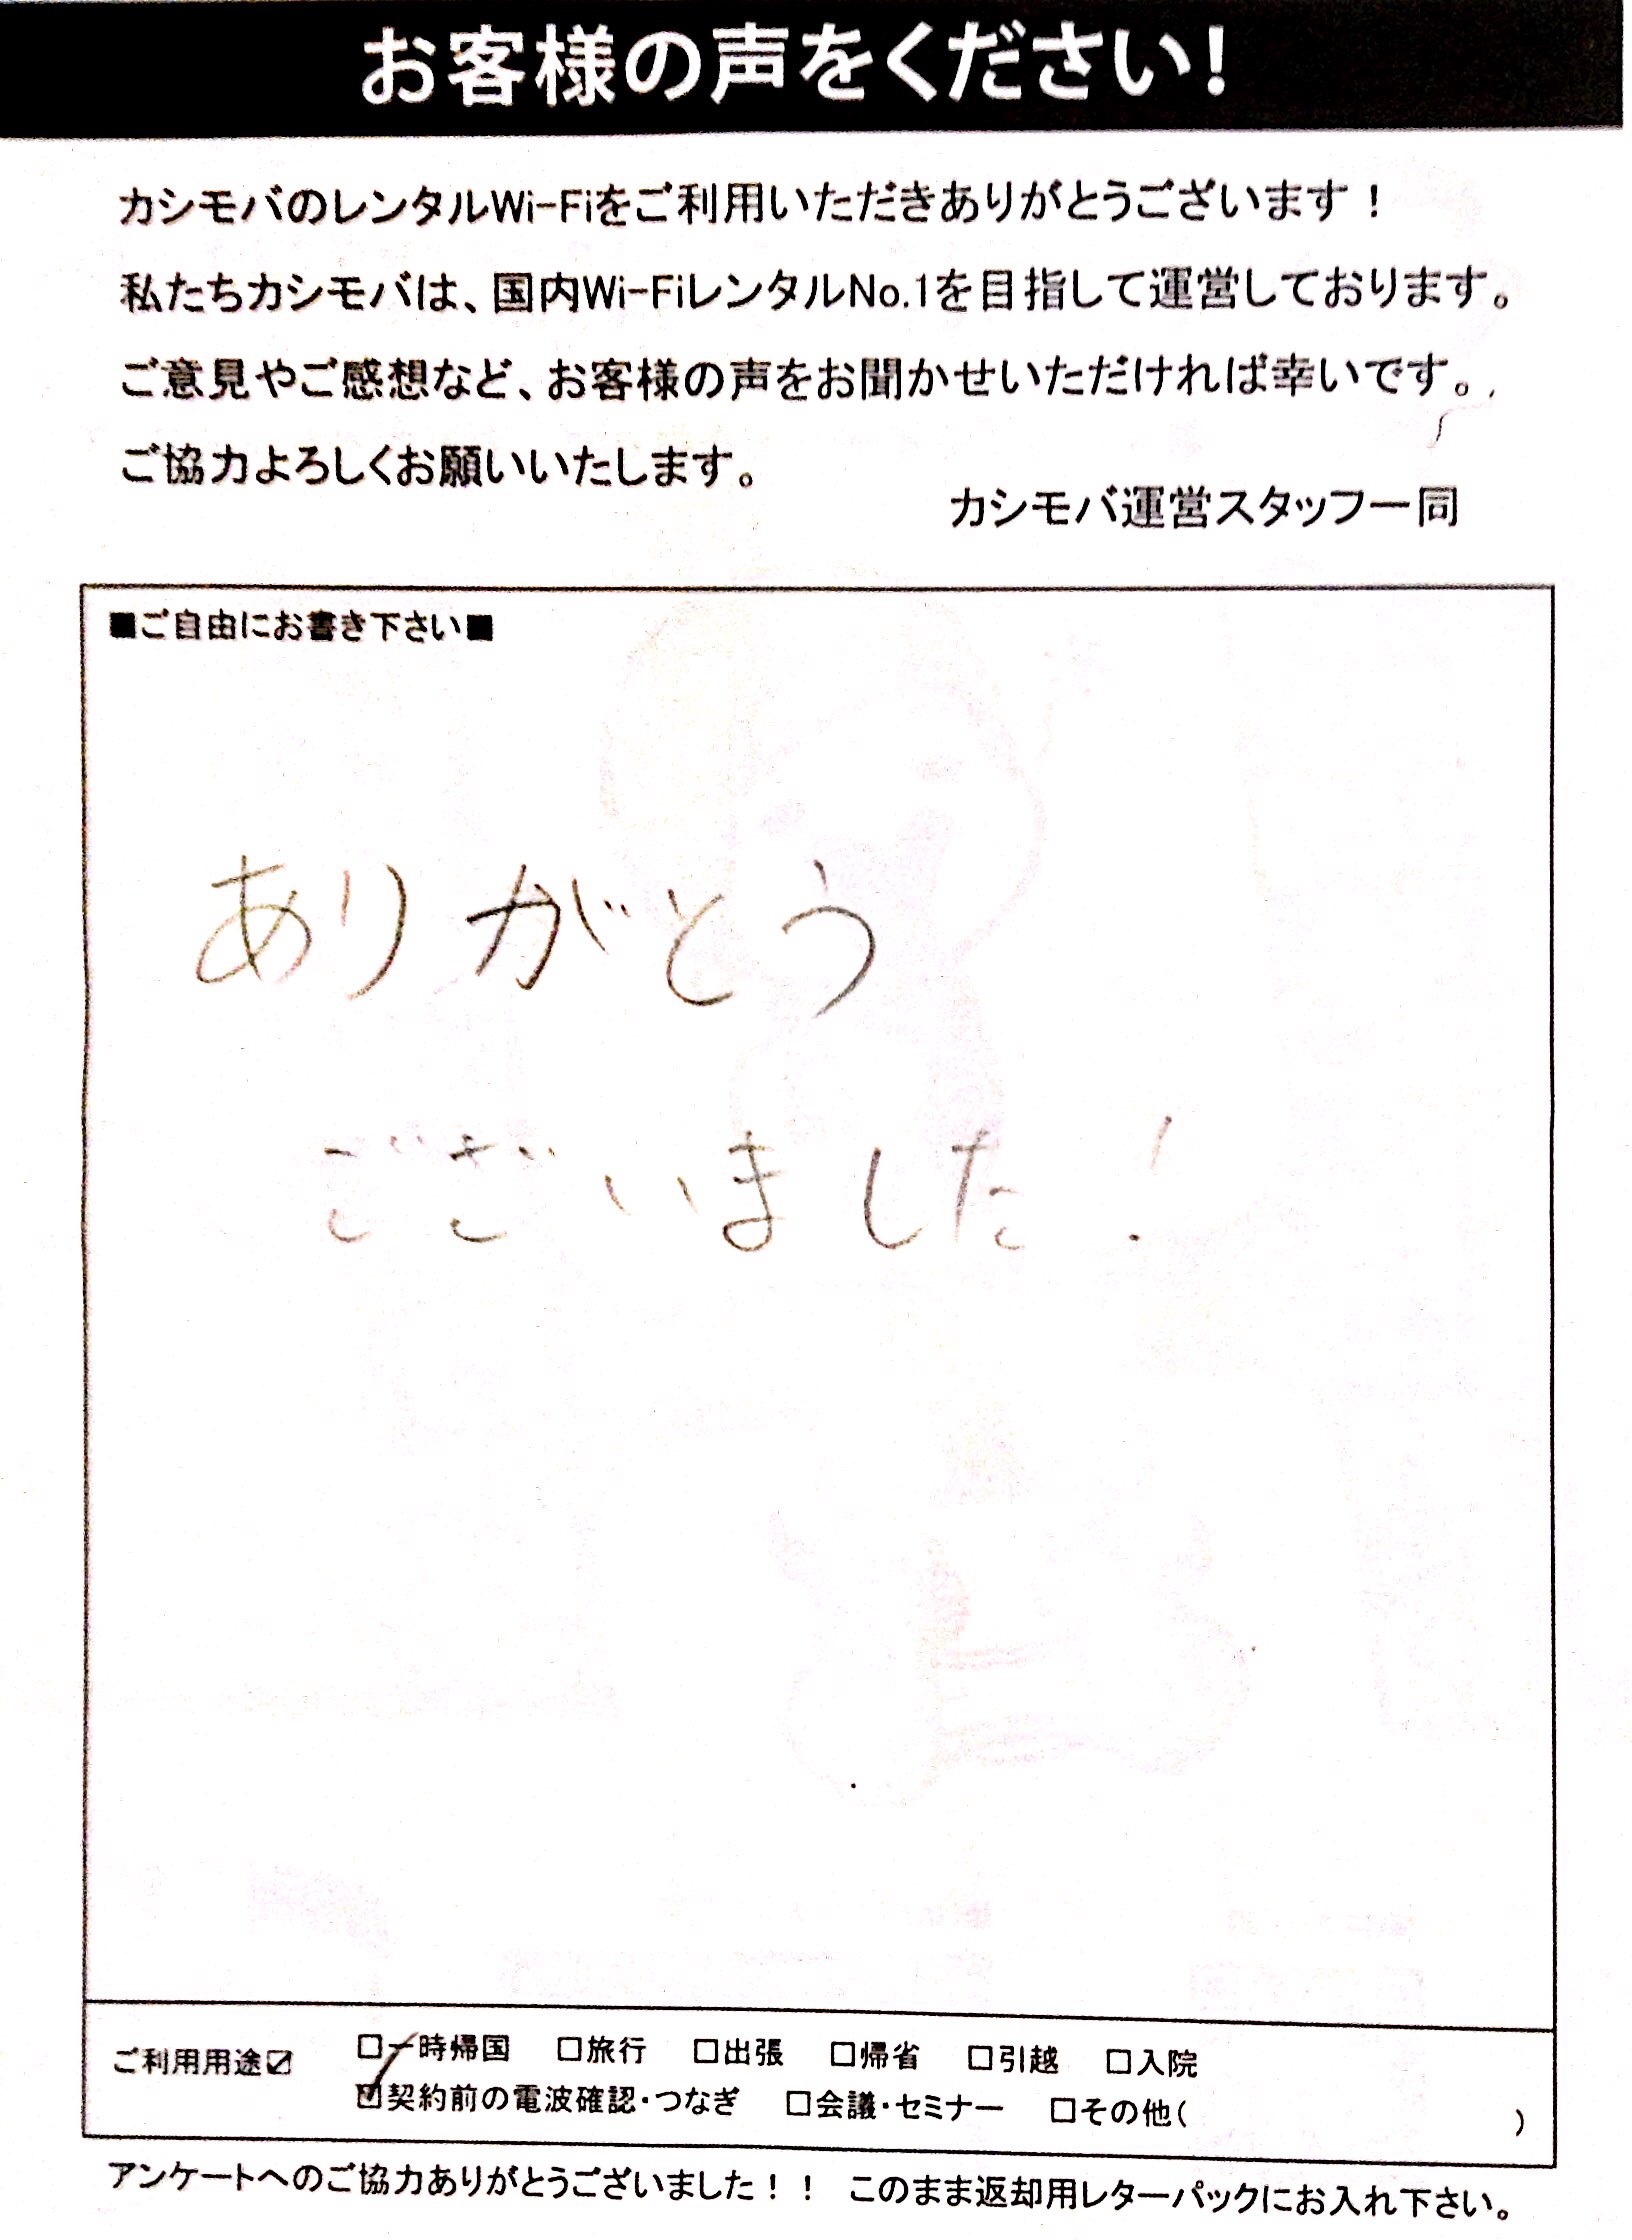 お客様の声をください！
カシモバのレンタルWi-Fiをご利用いただきありがとうございます！
私たちカシモバは、国内Wi-FiレンタルNo.1を目指して運営しております。
ご意見やご感想など、お客様の声をお聞かせいただければ幸いです。
ご協力よろしくお願いいたします。
カシモバ運営スタッフ一同
■ご自由にお書き下さい■
ありがとう
ございました！
ご利用用途☑ □一時帰国 □旅行 □出張 □帰省 □引越 □入院
☑契約前の電波確認・つなぎ □会議・セミナー □その他( )
アンケートへのご協力ありがとうございました！！ このまま返却用レターパックにお入れ下さい。